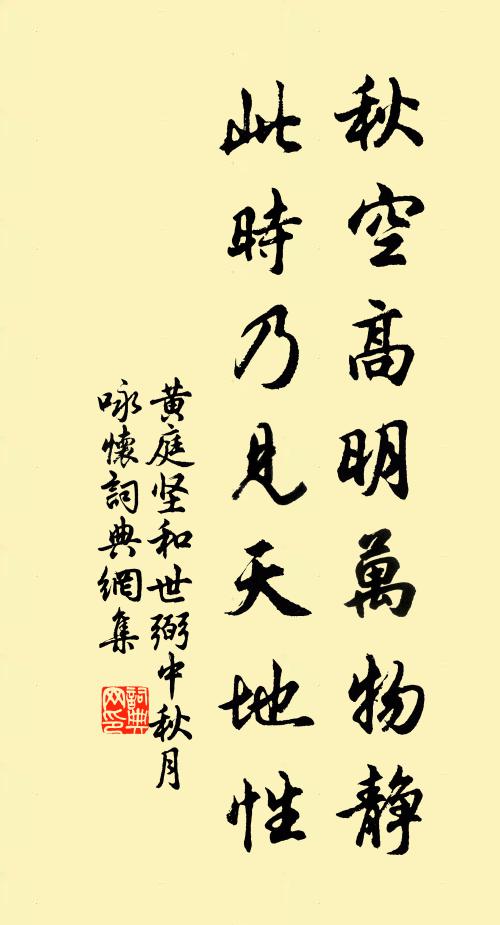 秋空高明萬物静
此時乃見天地性
黄庭坚和世弼中秋月
咏懷詞典網集
詞典网印